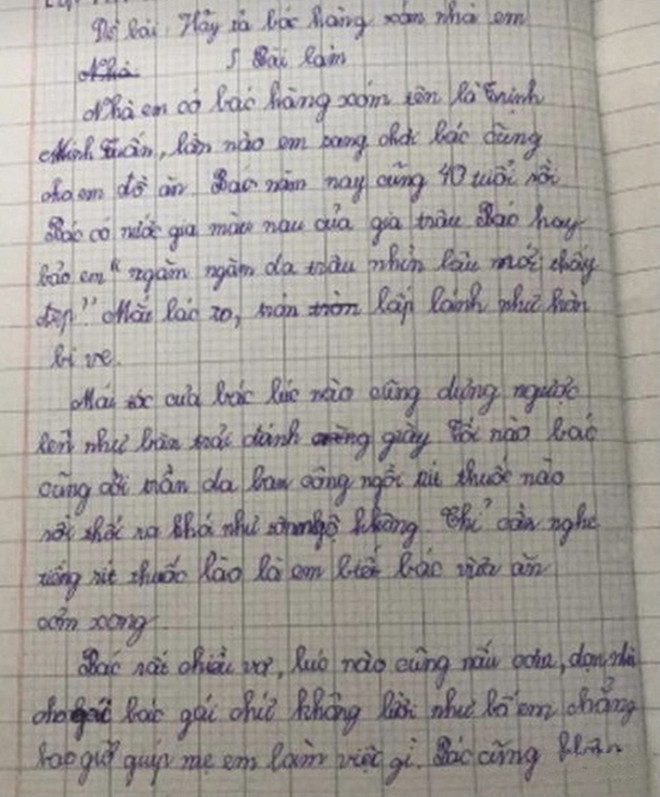 Đề bài: Hãy tả bác hàng xóm nhà em
Bài làm
Nhà em có bác hàng xóm tên là Trịnh
Minh Tuấn, lần nào em sang chơi bác cũng
cho em đồ ăn Bác năm nay cũng 40 tuổi rồi
Bác có nước gia màu nau của gia trâu Bác hay
bảo em "ngăm ngăm da trâu nhìn lâu mới thấy
đẹp" Mắt bác to, tròn lấp lánh như hòn
bi ve.
Mái tóc của bác lúc nào cũng dựng ngược
lên như bàn trải đánh giày Tối nào bác
cũng cởi trần da ban công ngồi rít thuốc nào
rồi thổi ra khói như Không. Chỉ cần nghe
tiếng rít thuốc lào là em biết bác vừa ăn
cơm xong
Bác rất chiều vợ, lúc nào cũng nấu cơm, dọn nhà
cho bác gái chứ không lười như bố em chẳng
bao giờ giúp mẹ em làm việc gì. Bác cũng